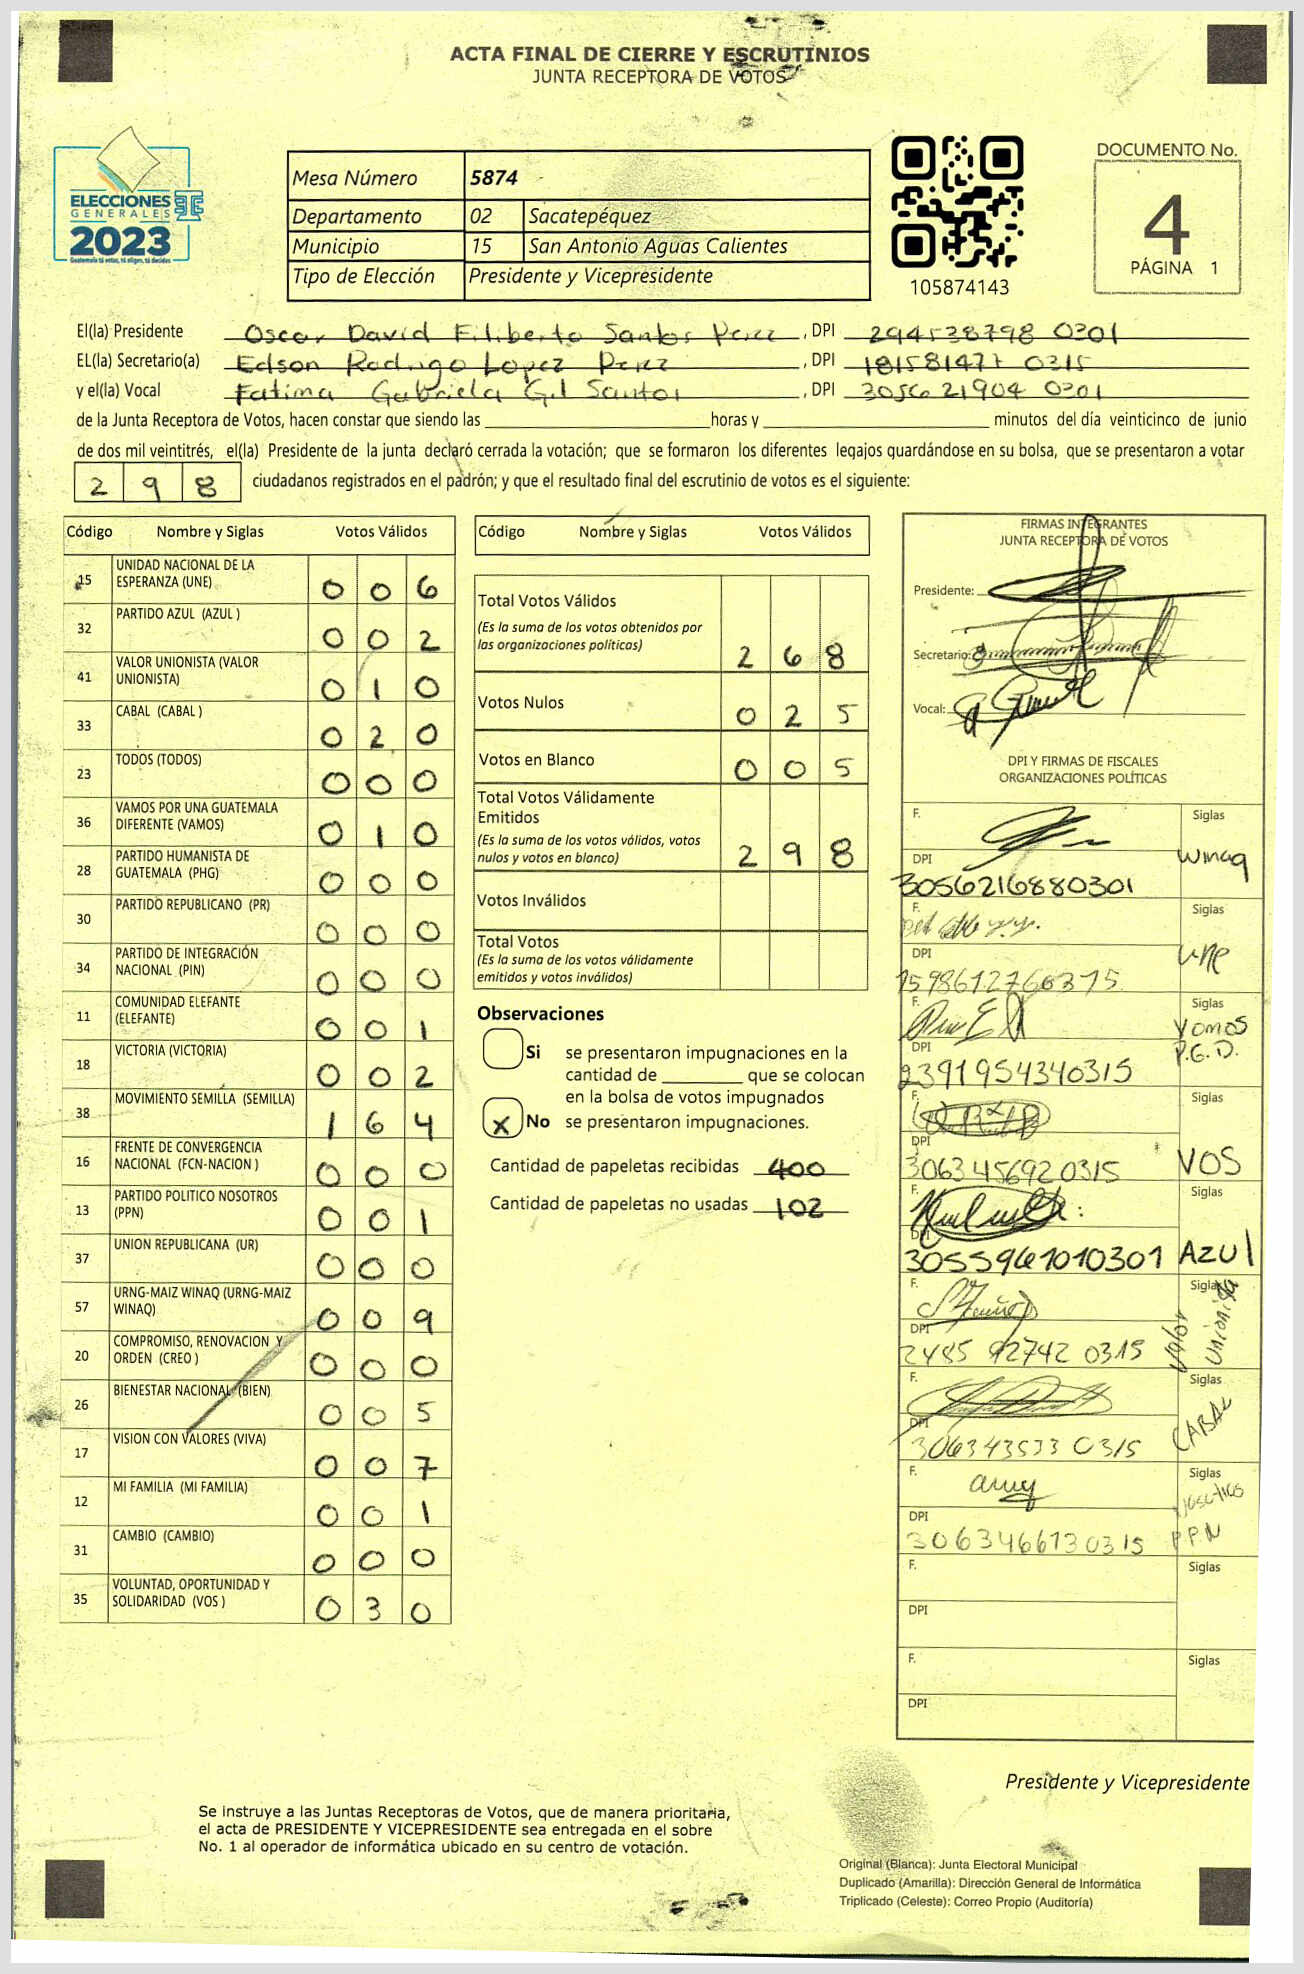 ACTA FINAL DE CIERRE Y ESCRUTINIOS
JUNTA RECEPTORA DE VOTOS
ELECCIONES
GENERALES
2023
Guatemala tú votas, tú eliges, tú decides
Mesa Número 5874
Departamento 02 Sacatepéquez
Municipio 15 San Antonio Aguas Calientes
Tipo de Elección Presidente y Vicepresidente
105874143
DOCUMENTO No.
4
PÁGINA 1
El(la) Presidente Oscar David Filiberto Santos Perez, DPI 294538798 0301
EL(la) Secretario(a) Edson Rodrigo Lopez Perez, DPI 181581477 0315
y el(la) Vocal Fatima Gabriela Gil Santos, DPI 305621904 0301
de la Junta Receptora de Votos, hacen constar que siendo las horas y minutos del día veinticinco de junio
de dos mil veintitrés, el(la) Presidente de la junta declaró cerrada la votación; que se formaron los diferentes legajos guardándose en su bolsa, que se presentaron a votar
298 ciudadanos registrados en el padrón; y que el resultado final del escrutinio de votos es el siguiente:
Código Nombre y Siglas Votos Válidos
15 UNIDAD NACIONAL DE LA ESPERANZA (UNE) 0 0 6
32 PARTIDO AZUL (AZUL ) 0 0 2
41 VALOR UNIONISTA (VALOR UNIONISTA) 0 1 0
33 CABAL (CABAL ) 0 2 0
23 TODOS (TODOS) 0 0 0
36 VAMOS POR UNA GUATEMALA DIFERENTE (VAMOS) 0 1 0
28 PARTIDO HUMANISTA DE GUATEMALA (PHG) 0 0 0
30 PARTIDO REPUBLICANO (PR) 0 0 0
34 PARTIDO DE INTEGRACIÓN NACIONAL (PIN) 0 0 0
11 COMUNIDAD ELEFANTE (ELEFANTE) 0 0 1
18 VICTORIA (VICTORIA) 0 0 2
38 MOVIMIENTO SEMILLA (SEMILLA) 1 6 4
16 FRENTE DE CONVERGENCIA NACIONAL (FCN-NACION ) 0 0 0
13 PARTIDO POLITICO NOSOTROS (PPN) 0 0 1
37 UNION REPUBLICANA (UR) 0 0 0
57 URNG-MAIZ WINAQ (URNG-MAIZ WINAQ) 0 0 9
20 COMPROMISO, RENOVACION Y ORDEN (CREO ) 0 0 0
26 BIENESTAR NACIONAL (BIEN) 0 0 5
17 VISION CON VALORES (VIVA) 0 0 7
12 MI FAMILIA (MI FAMILIA) 0 0 1
31 CAMBIO (CAMBIO) 0 0 0
35 VOLUNTAD, OPORTUNIDAD Y SOLIDARIDAD (VOS ) 0 3 0
Código Nombre y Siglas Votos Válidos
Total Votos Válidos
(Es la suma de los votos obtenidos por
las organizaciones políticas) 2 6 8
Votos Nulos 0 2 5
Votos en Blanco 0 0 5
Total Votos Válidamente
Emitidos
(Es la suma de los votos válidos, votos
nulos y votos en blanco) 2 9 8
Votos Inválidos
Total Votos
(Es la suma de los votos válidamente
emitidos y votos inválidos)
Observaciones
Si se presentaron impugnaciones en la
cantidad de que se colocan
en la bolsa de votos impugnados
X No se presentaron impugnaciones.
Cantidad de papeletas recibidas 400
Cantidad de papeletas no usadas 102
FIRMAS INTEGRANTES
JUNTA RECEPTORA DE VOTOS
Presidente:
Secretario:
Vocal:
DPI Y FIRMAS DE FISCALES
ORGANIZACIONES POLÍTICAS
F. Siglas
Winaq
DPI
3056216880301
F. Siglas
une
DPI
1598612760315
F. Siglas
Vamos
P.G.D.
DPI
2391954340315
F. Siglas
DPI
3063456920315 VOS
F. Siglas
DPI
3055961010301 AZUL
F. Siglas
Valor Unionista
DPI
2485 92742 0315
F. Siglas
CABAL
DPI
306343533 0315
F. Siglas
Nosotros
PPN
DPI
3063466130315
F. Siglas
DPI
F. Siglas
DPI
Presidente y Vicepresidente
Se instruye a las Juntas Receptoras de Votos, que de manera prioritaria,
el acta de PRESIDENTE Y VICEPRESIDENTE sea entregada en el sobre
No. 1 al operador de informática ubicado en su centro de votación.
Original (Blanca): Junta Electoral Municipal
Duplicado (Amarilla): Dirección General de Informática
Triplicado (Celeste): Correo Propio (Auditoría)